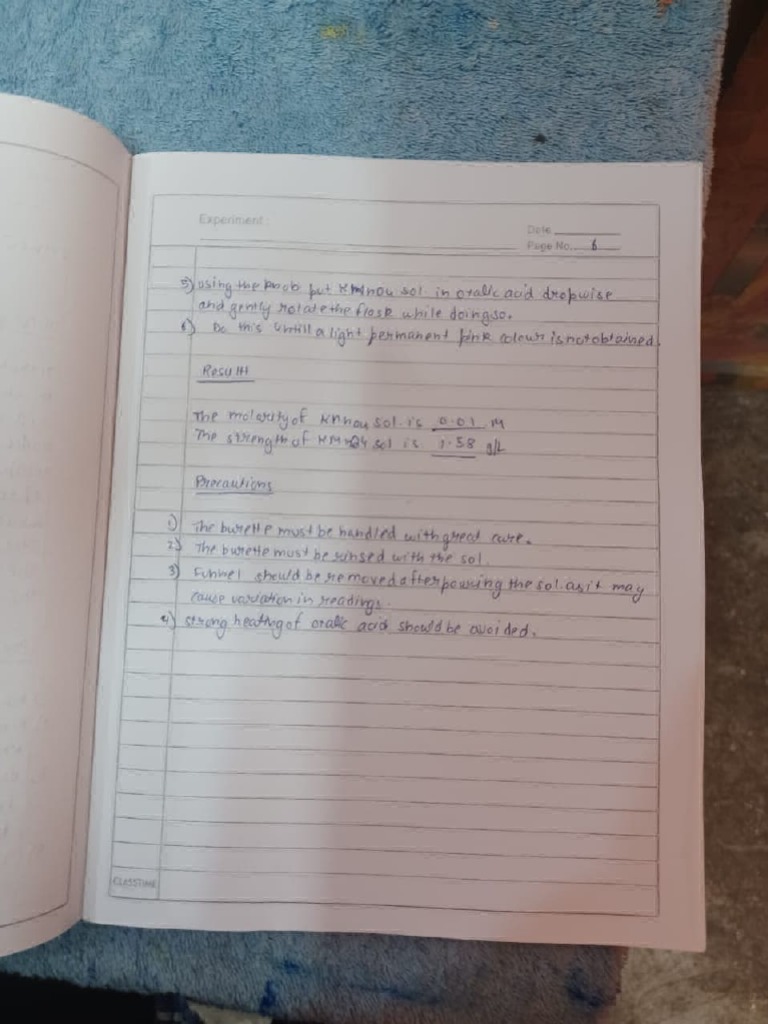 Experiment :
Date
Page No. 6
5) Using the knob put KMnO4 sol. in oxalic acid dropwise
and gently rotate the flask while doing so.
6) Do this untill a light permanent pink colour is not obtained.
Result
The molarity of KMnO4 sol. is 0.01 M
The strength of KMnO4 sol is 1.58 g/L
Precautions
1) The burette must be handled with great care.
2) The burette must be rinsed with the sol.
3) Funnel should be removed after pouring the sol. as it may
cause variation in readings.
4) strong heating of oxalic acid should be avoided.
CLASSTIME